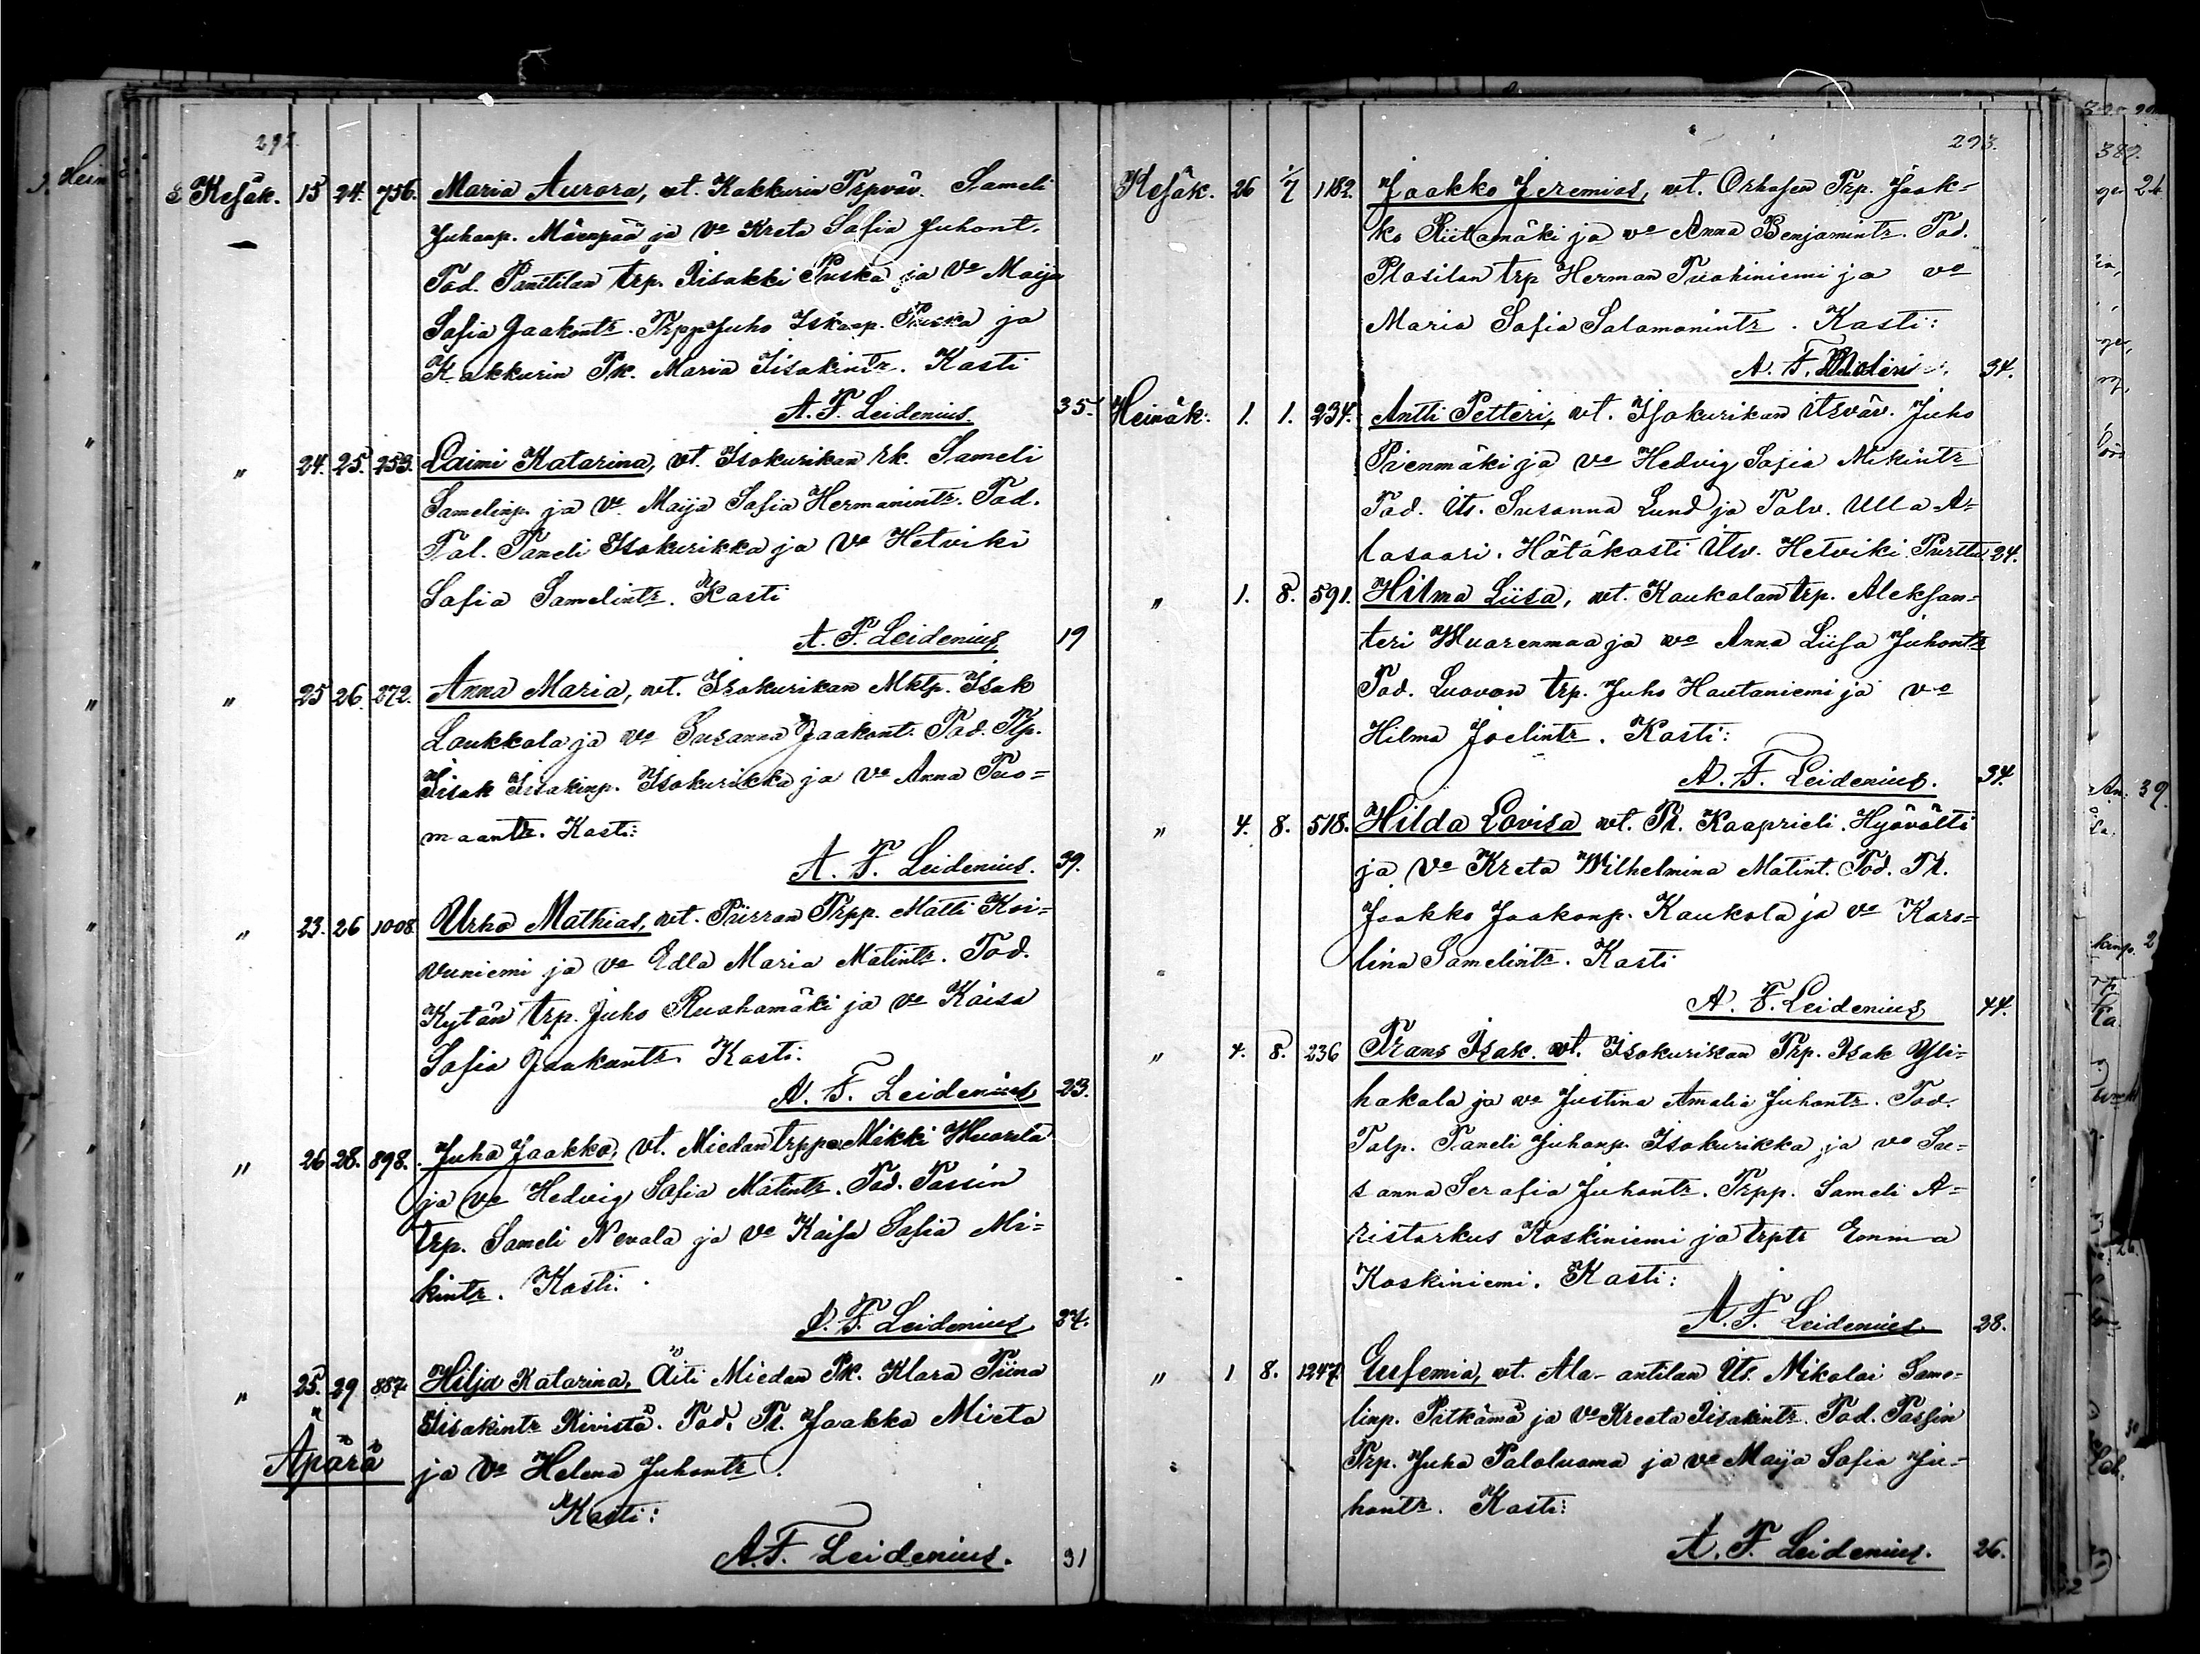 292
Kesäk. 15 24. 756. Maria Aurora, vt. Kakkurin Trpväv. Sameli
Juhanp. Mäenpää ja Vo Kreta Sofia Juhont.
Tod. Panttilan trp. Iisakki Puska ja Vo Maija
Sofia Jaakontr. Trpp Juho Iskanp. Puska ja
Kakkurin Pk. Maria Iisakintr. Kasti
A. F. Leidenius. 35.
" 24. 25. 253. Laimi Katarina, vt. Isokurikan rk. Sameli
Samelinp. ja Vo Maija Sofia Hermanintr. Tod.
Tal. Taneli Isokurikka ja Vo Hetviki
Sofia Samelintr. Kasti
A. F. Leidenius 19
" 25 26. 272. Anna Maria, vt. Isokurikan Mktp. Isak
Loukkola ja vo Susanna Jaakont. Tod. Tlp.
Iisak Iisakinp. Isokurikka ja Vo Anna Tuo-
maantr. Kasti:
A. F. Leidenius. 39.
" 23. 26 1008 Urho Mathias, vt. Piirran Trpp. Matti Koi-
vuniemi ja Vo Edla Maria Matintr. Tod.
Kytän trp. Juho Ruohamäki ja Vo Kaisa
Sofia Jaakontr. Kasti:
A. F. Leidenius 23.
" 26 28. 898. Juha Jaakko, vt. Miedan trpp Mikki Wuorela
ja Vo Hedvig Sofia Matintr. Tod. Passin
trp. Sameli Nevala ja Vo Kaisa Sofia Mi-
kintr. Kasti.
A. F. Leidenius 34.
" 25. 29 887. Hilja Katarina, Äiti Miedan Pk. Klara Tiina
Iisakintr Kivistö. Tod. Tl. Jaakko Mieto
Äpärä ja Vo Helena Juhontr.
Kasti:
A. F. Leidenius. 31
293.
Kesäk. 26 1/7 1182. Jaakko Jeremias, vt. Orhasen Trp. Jaak-
ko Riitamäki ja vo Anna Benjamintr. Tod.
Plosilan trp Herman Tuokiniemi ja vo
Maria Sofia Salamonintr. Kasti:
A. F. 34.
Heinäk. 1. 1. 234. Antti Petteri, vt. Isokurikan Itsväv. Juho
Prienmäki ja Vo Hedvig Sofia Mikintr
Tod. Its. Susanna Lund ja Palv. Ulla A-
lasaari. Hätäkasti Itsv. Hetviki Purttu 24.
" 1. 8. 591. Hilma Liisa, vt. Kaukolan trp. Aleksan-
teri Wuorenmaa ja vo Anna Liisa Juhontr
Tod. Luovan trp. Juho Hautaniemi ja vo
Hilma Joelintr. Kasti:
A. F. Leidenius. 34
" 4. 8. 518. Hilda Lovisa vt. Tl. Kaaprieli Hyövälti
ja Vo Kreta Wilhelmina Matint. Tod. Tl.
Jaakko Jaakonp. Kaukola ja Vo Karo-
lina Samelintr. Kasti
A. F. Leidenius 44.
" 4. 8. 236 Frans Isak. vt. Isokurikan Trp. Isak Yli-
hakala ja vo Justina Amalia Juhontr. Tod.
Talp. Taneli Juhanp. Isokurikka ja vo Su-
sanna Serafia Juhontr. Trpp. Sameli A-
ristarkus Koskiniemi ja trptr Emma
Koskiniemi. Kasti:
A. F. Leidenius. 28.
" 1 8. 1247. Eufemia, vt. Ala-antilan Its. Nikolai Same-
linp. Pitkämä ja Vo Kreeta Iisakintr. Tod. Passin
Trp. Juha Paloluoma ja vo Maija Sofia Ju-
hontr. Kasti:
A. F. Leidenius. 26.